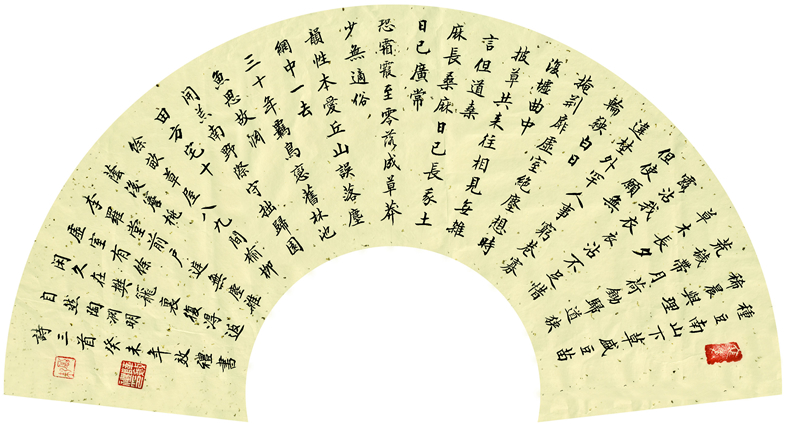 種豆南山下草盛豆苗
稀晨興理
荒穢帶月荷鋤歸道狹
草木長夕
露沾我衣衣沾不足惜
但使願無
違野外罕人事窮巷寡
輪鞅白日
掩荊扉虛室絕塵想時
復墟曲中
披草共來往相見無雜
言但道桑
麻長桑麻日已長我土
日已廣常
恐霜霰至零落成草莽
少無適俗
韻性本愛丘山誤落塵
網中一去
三十年羈鳥戀舊林池
魚思故淵
開荒南野際守拙歸園
田方宅十
餘畝草屋八九間榆柳
蔭後簷桃
李羅堂前戶庭無塵雜
虛室有餘
閑久在樊籠裏復得返
自然陶淵明
詩三首癸未年效禮書